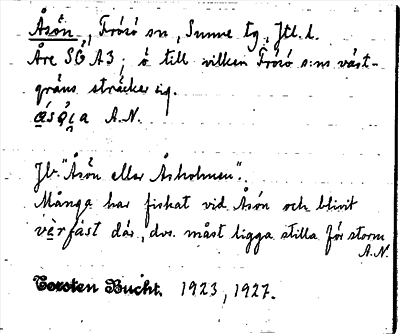 Åsön, Frösö sn, Sunne tg, Jtl. l.
Åre SÖ A3; ö till vilken Frösö s:ns väst-
gräns sträcker sig.
A.N.
Jb. "Åsön eller Åsholmen".
Många har fiskat vid Åsön och blivit
vèrfast där, dvs. måst ligga stilla för storm
A.N.
Torsten Bucht. 1923, 1927.